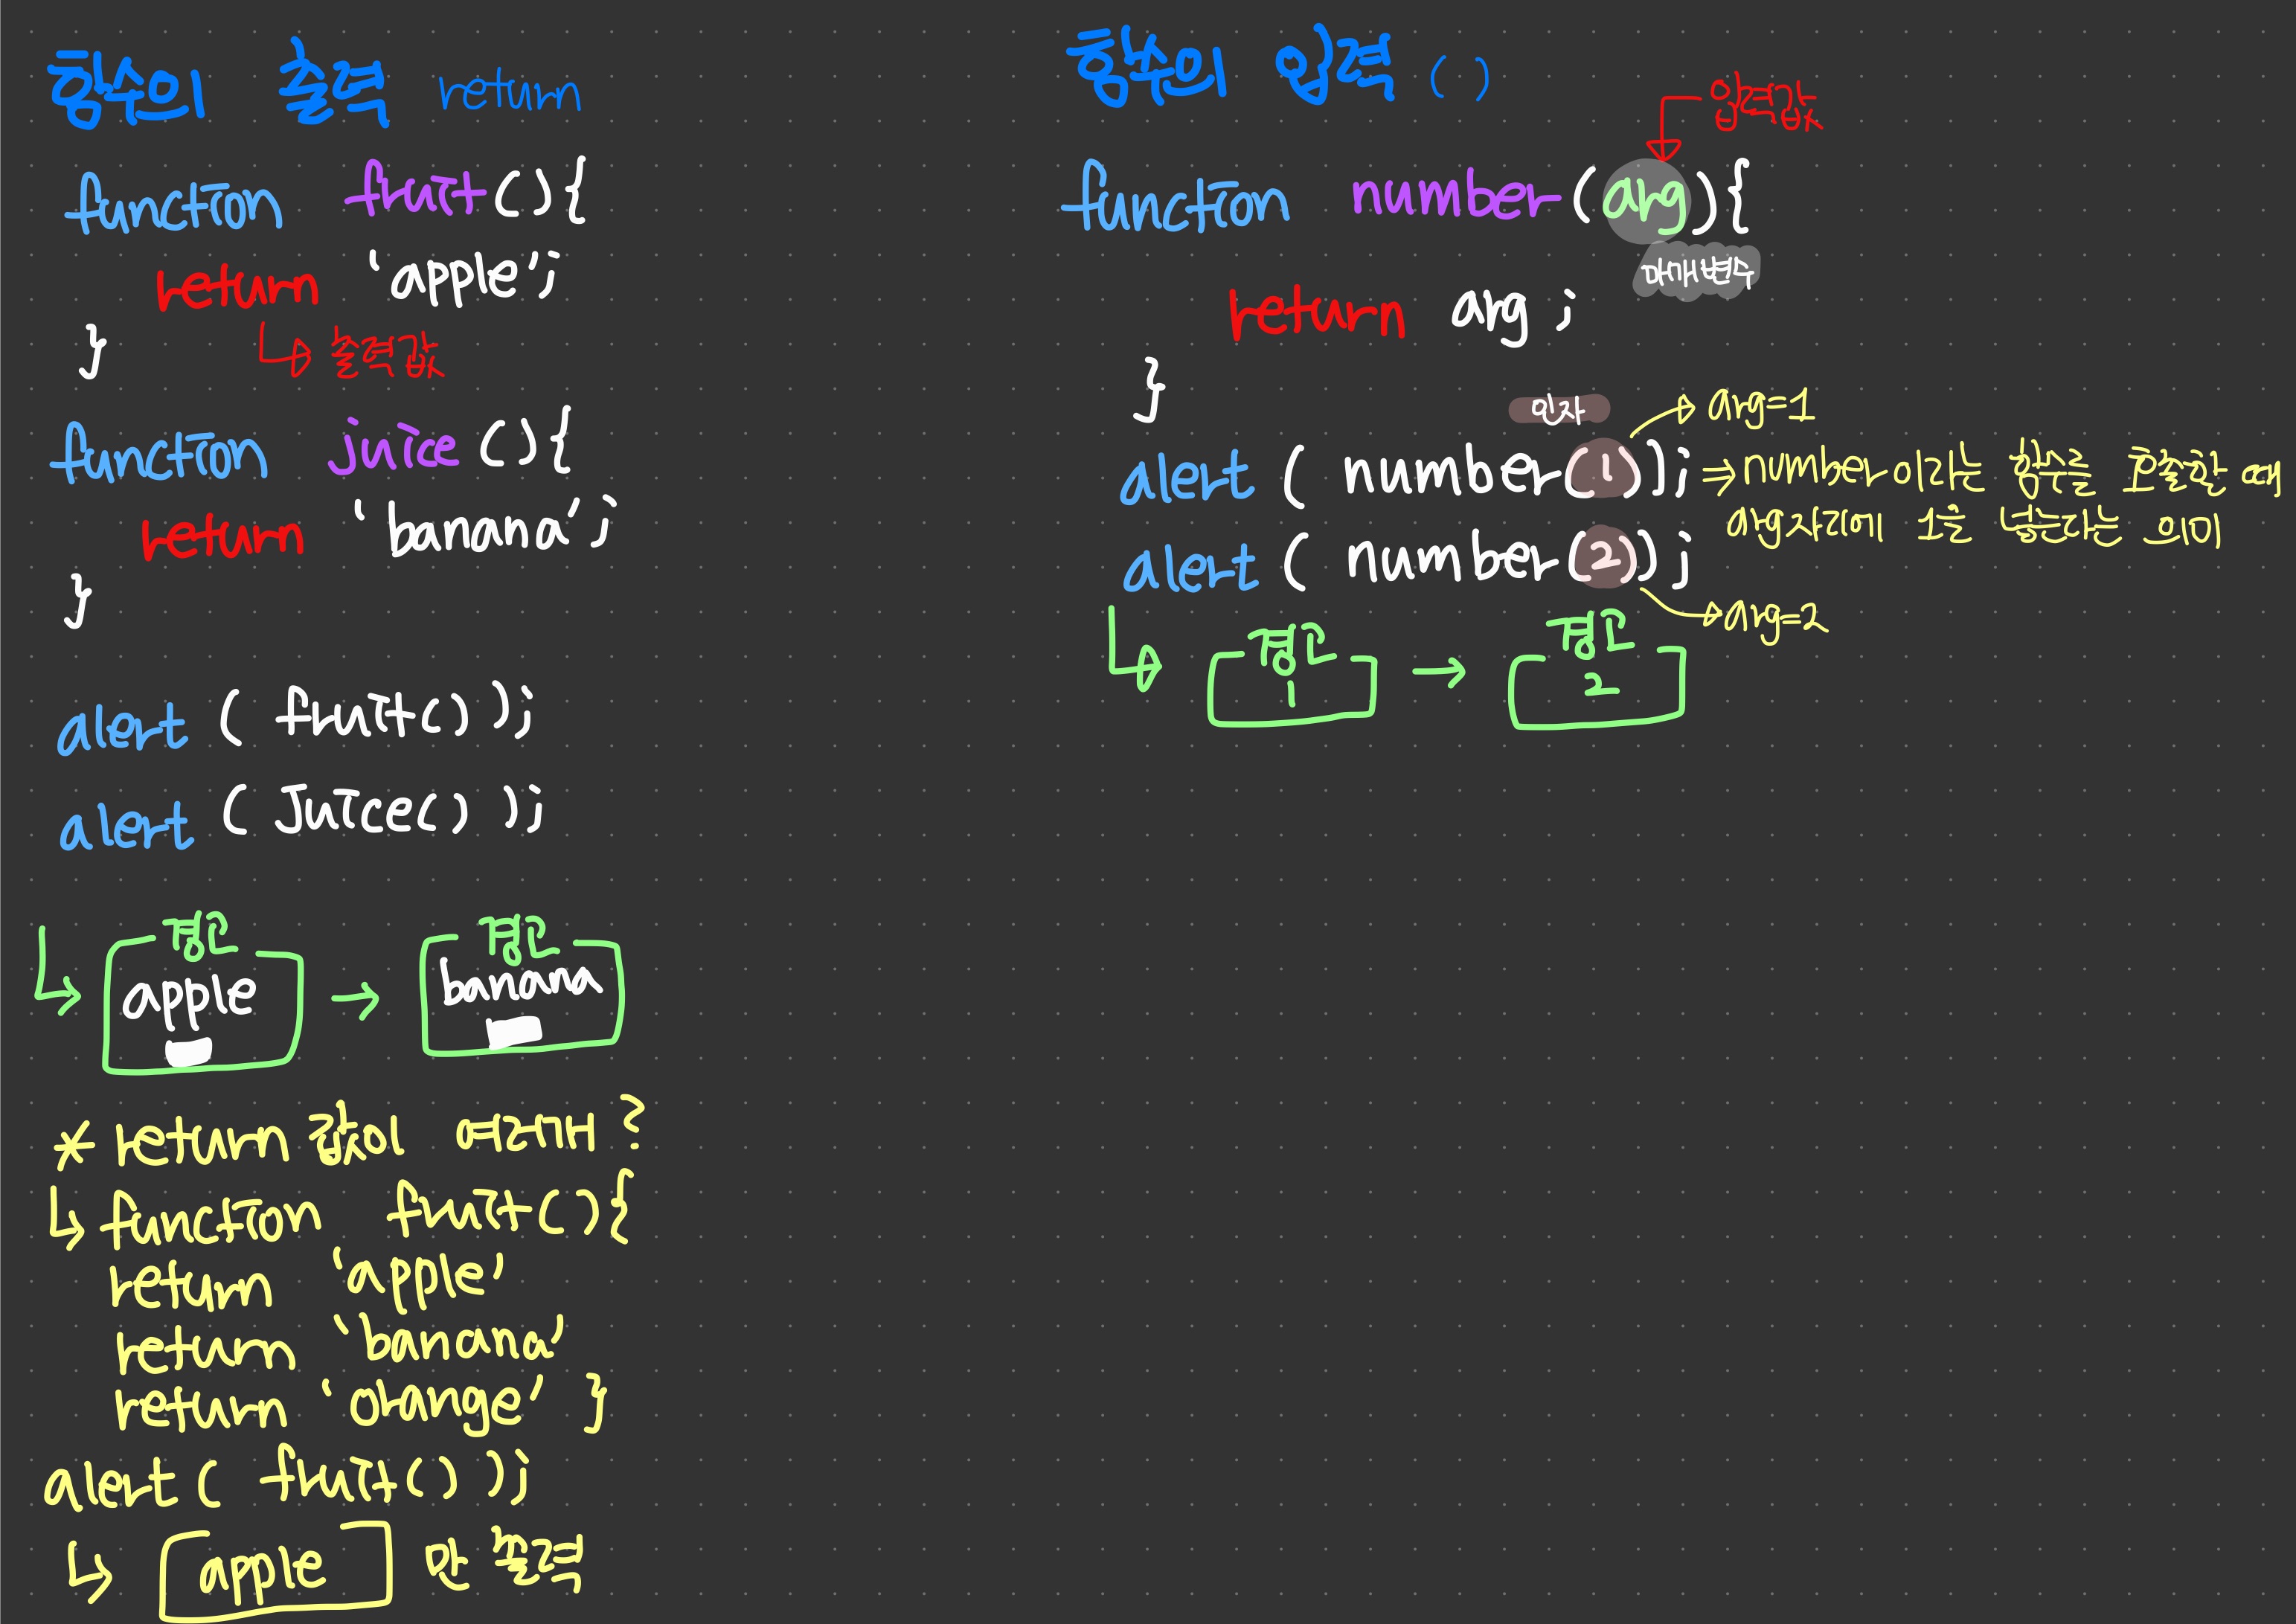 함수의 출력 return
function fruit(){
return 'apple';
}
↳ 출력값
function juice(){
return 'banana';
}
alert ( fruit() );
alert ( Juice() );
↳ 경고
apple
→
경고
banana
* return 값이 여러개?
↳ function fruit(){
return 'apple'
return 'banana'
return 'orange' }
alert( fruit() );
↳ apple 만 출력
함수의 입력 ( )
입력값
function number (arg){
매개변수
return arg ;
}
인자
→ arg=1
alert ( number(1)); ⇒ number이라는 함수를 호출할 때
arg자리에 1을 넣는다는 의미
alert ( number(2));
→ arg=2
↳ 경고
1
→
경고
2